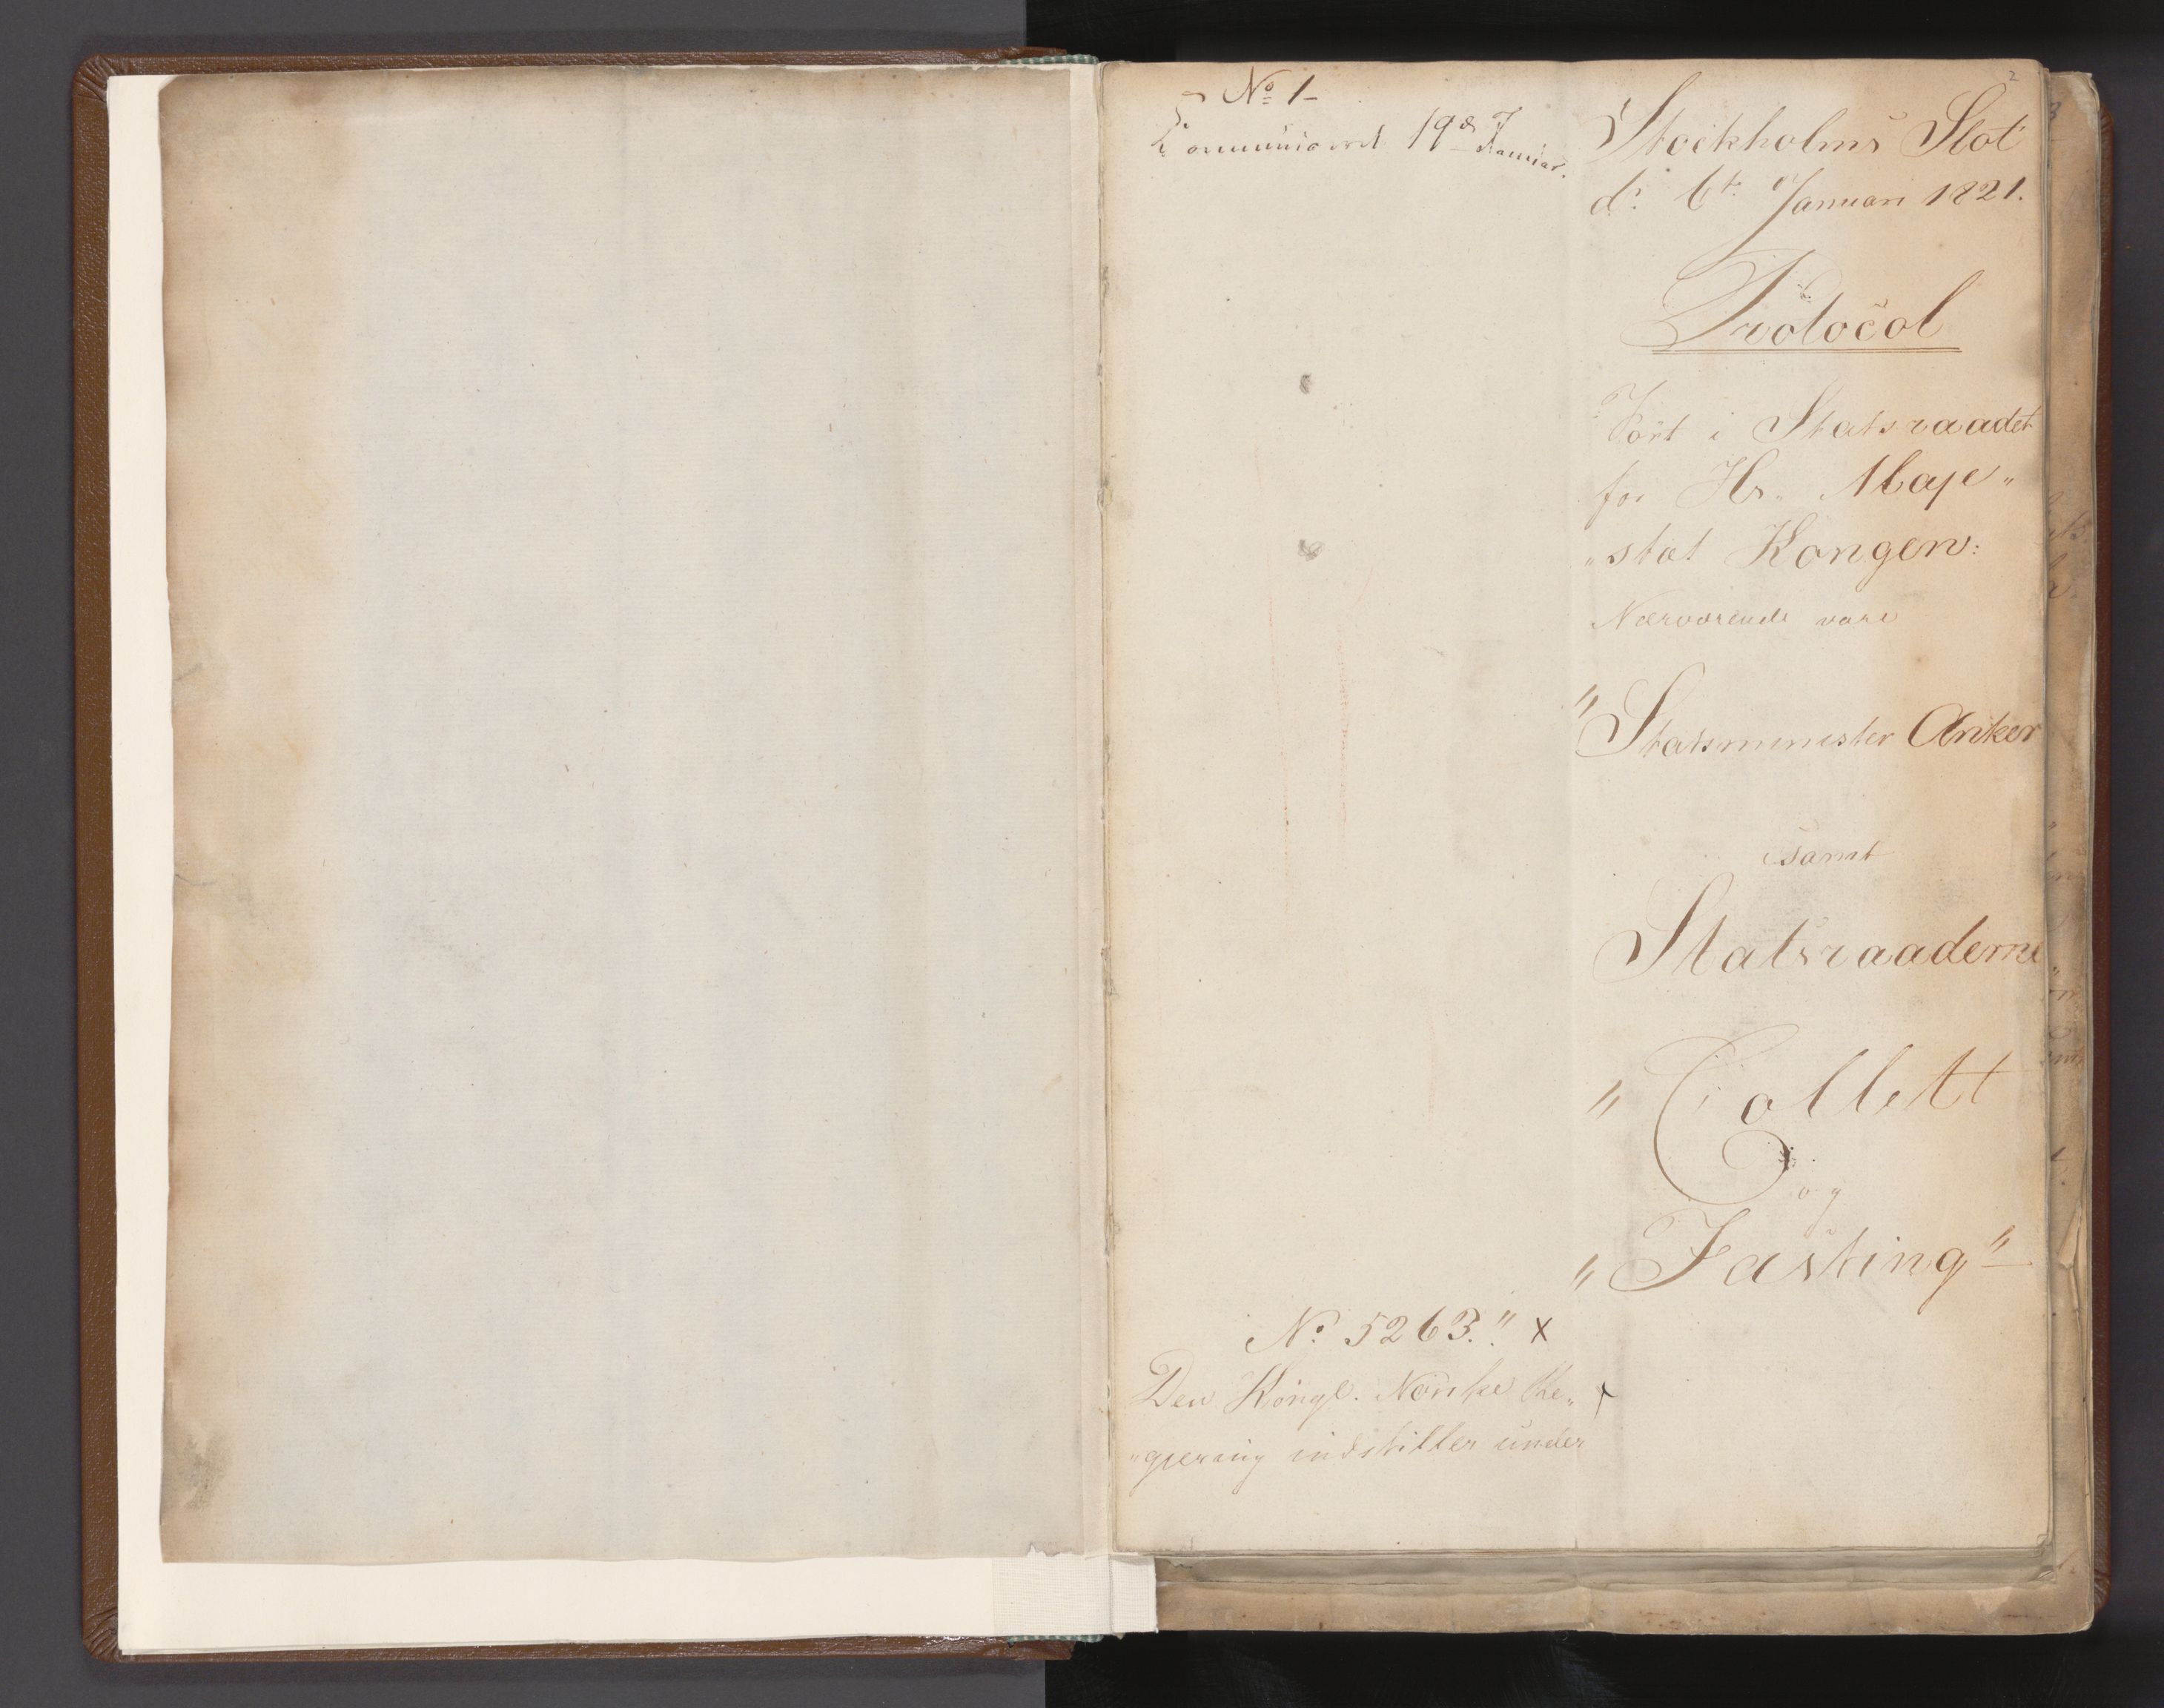 2
No 1-
Communiceret 19de Januar.
Stockholms Slot
dn 6te Januari 1821.
Protocol
Fört i Statsraadet
for Hs. Maje„
„stæt Kongen:
Nærværende vare
„Statsminister Anker
samt
Statsraaderne
„Collett
og
„Fasting"
No 5263." x
Den Kongl. Norske Re„
„gjering indstiller under